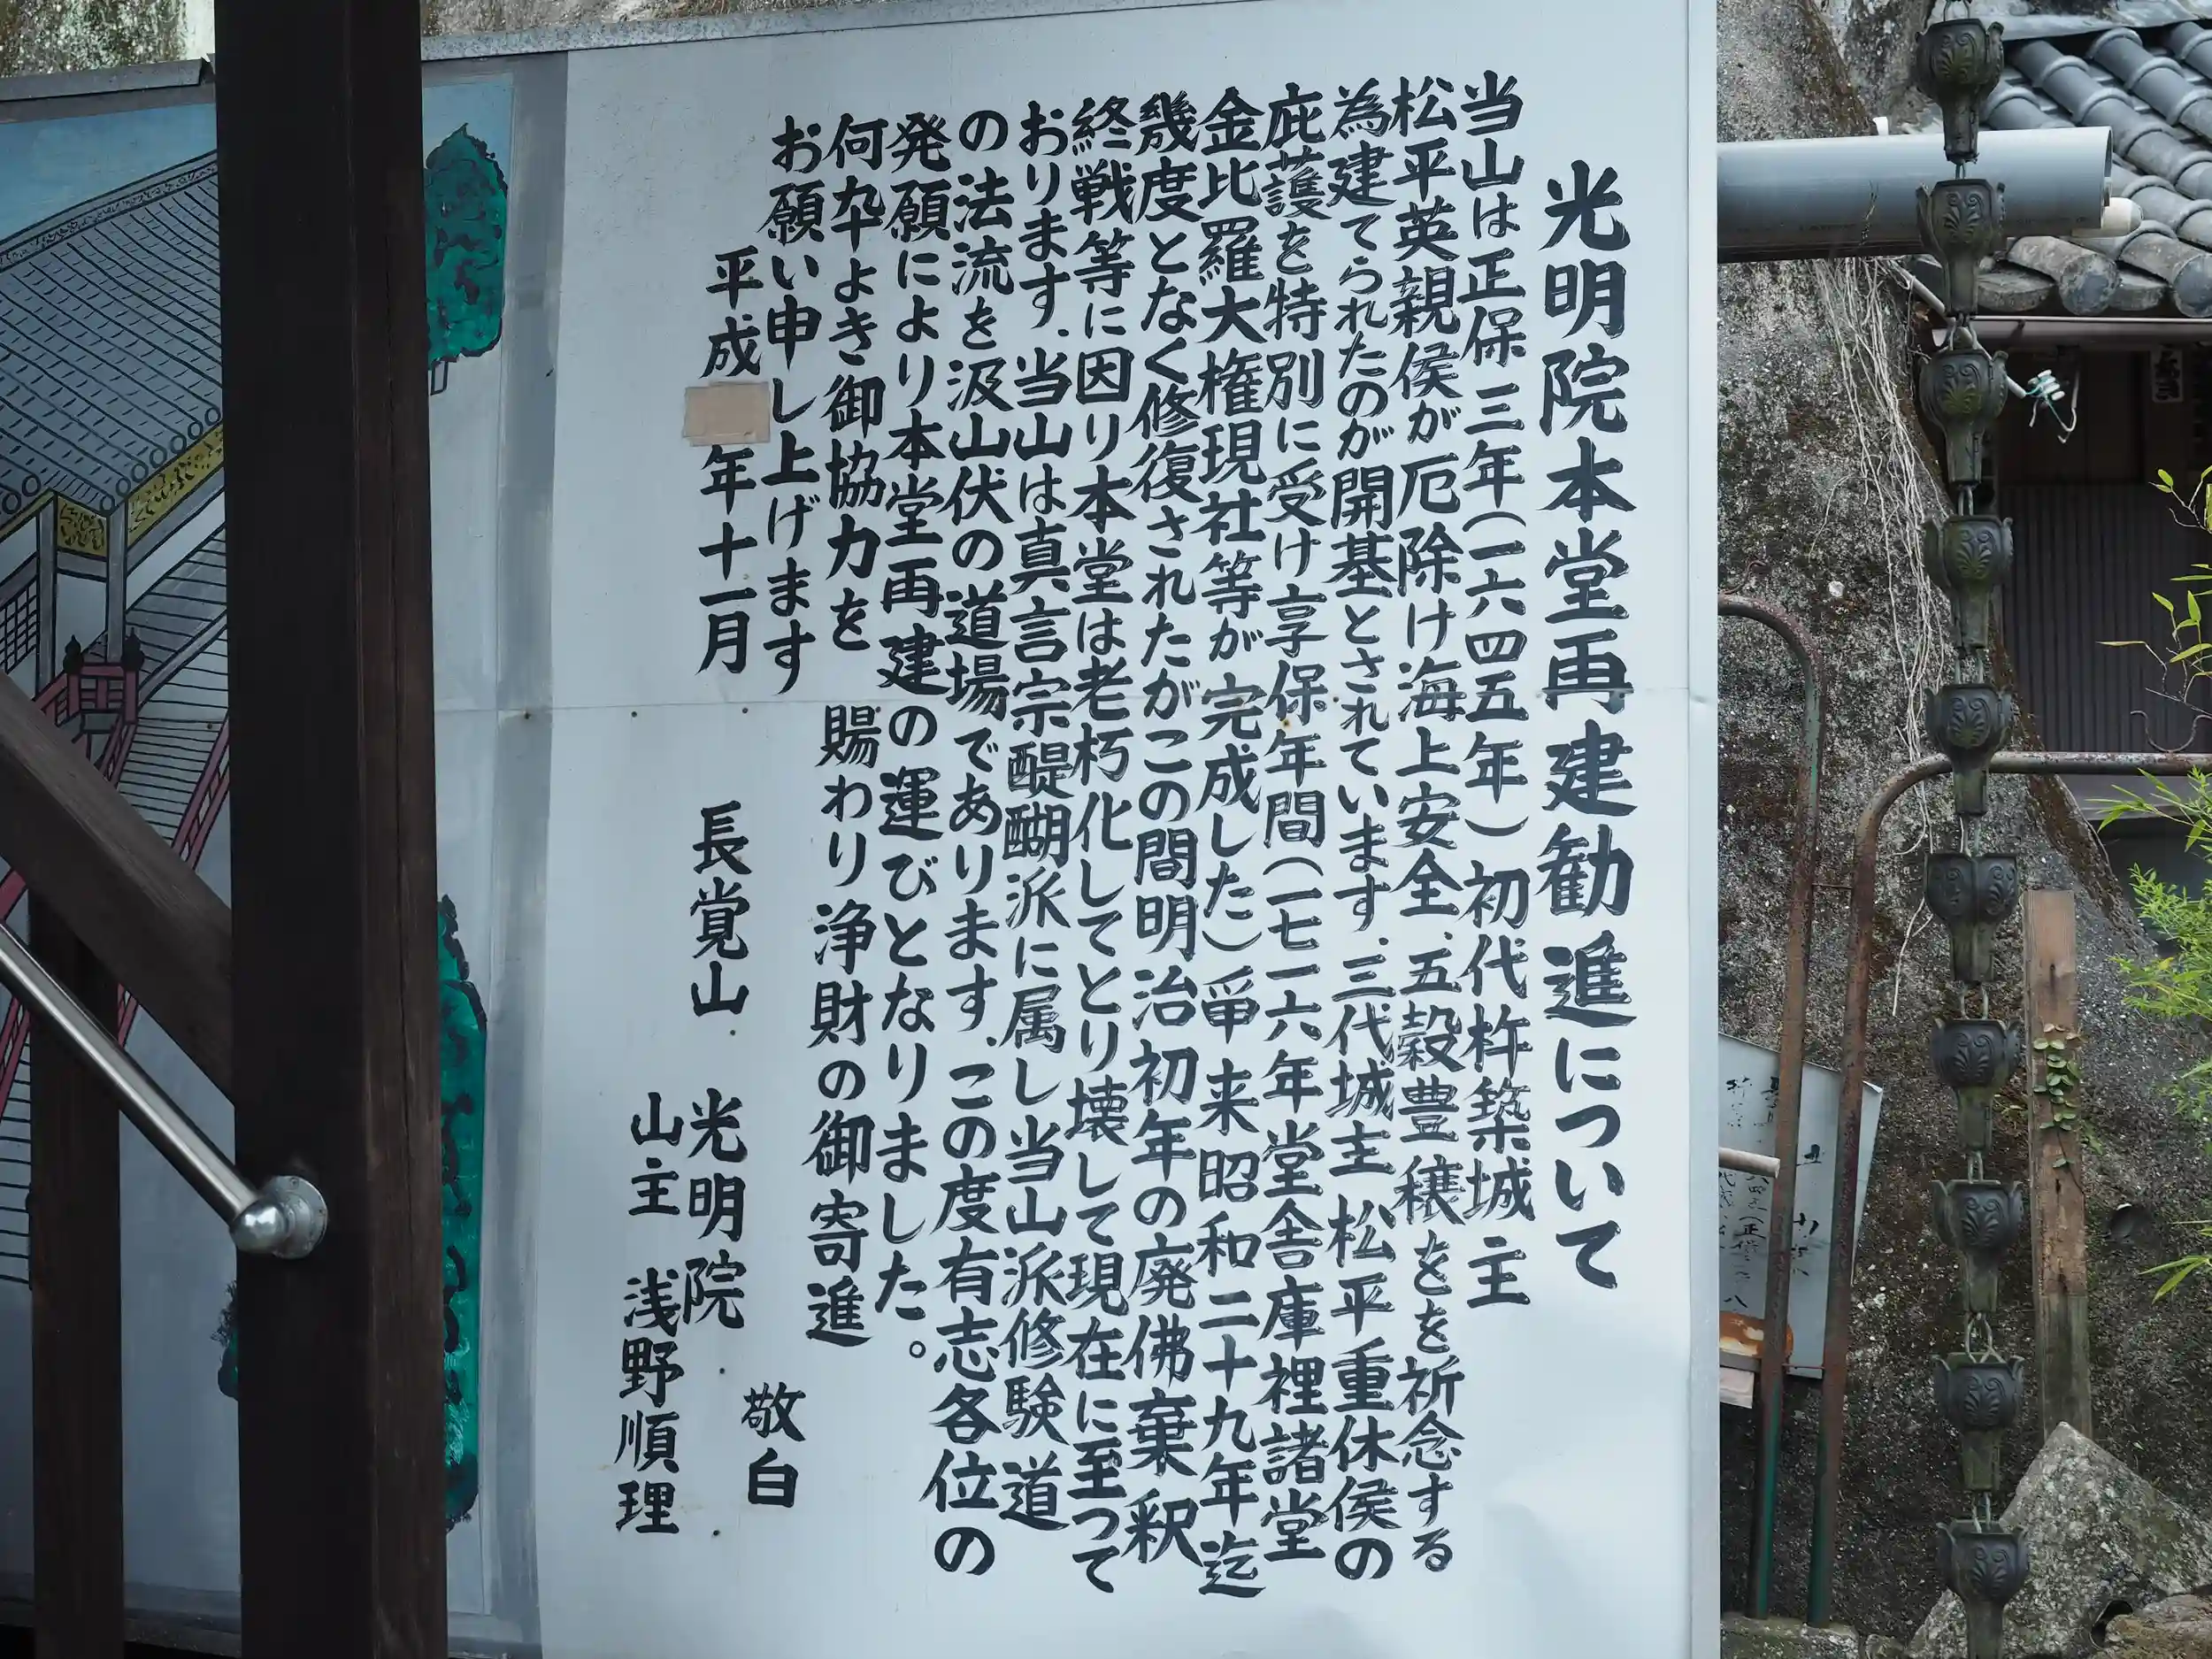 光明院本堂再建勧進について
当山は正保三年(一六四五年)初代杵築城主
松平英親侯が厄除け海上安全、五穀豊穣をを祈念する
為建てられたのが開基とされています、三代城主松平重休侯の
庇護を特別に受け享保年間(一七一六年堂舎庫裡諸堂
金比羅大権現社等が完成した)爾来昭和二十九年迄
幾度となく修復されたがこの間明治初年の廃佛棄釈
終戦等に因り本堂は老朽化してとり壊して現在に至って
おります、当山は真言宗醍醐派に属し当山派修験道
の法流を汲山伏の道場であります、この度有志各位の
発願により本堂再建の運びとなりました。
何卆よき御協力を賜わり浄財の御寄進
お願い申し上げます
敬白
平成 年十一月
長覚山 光明院
山主 浅野順理